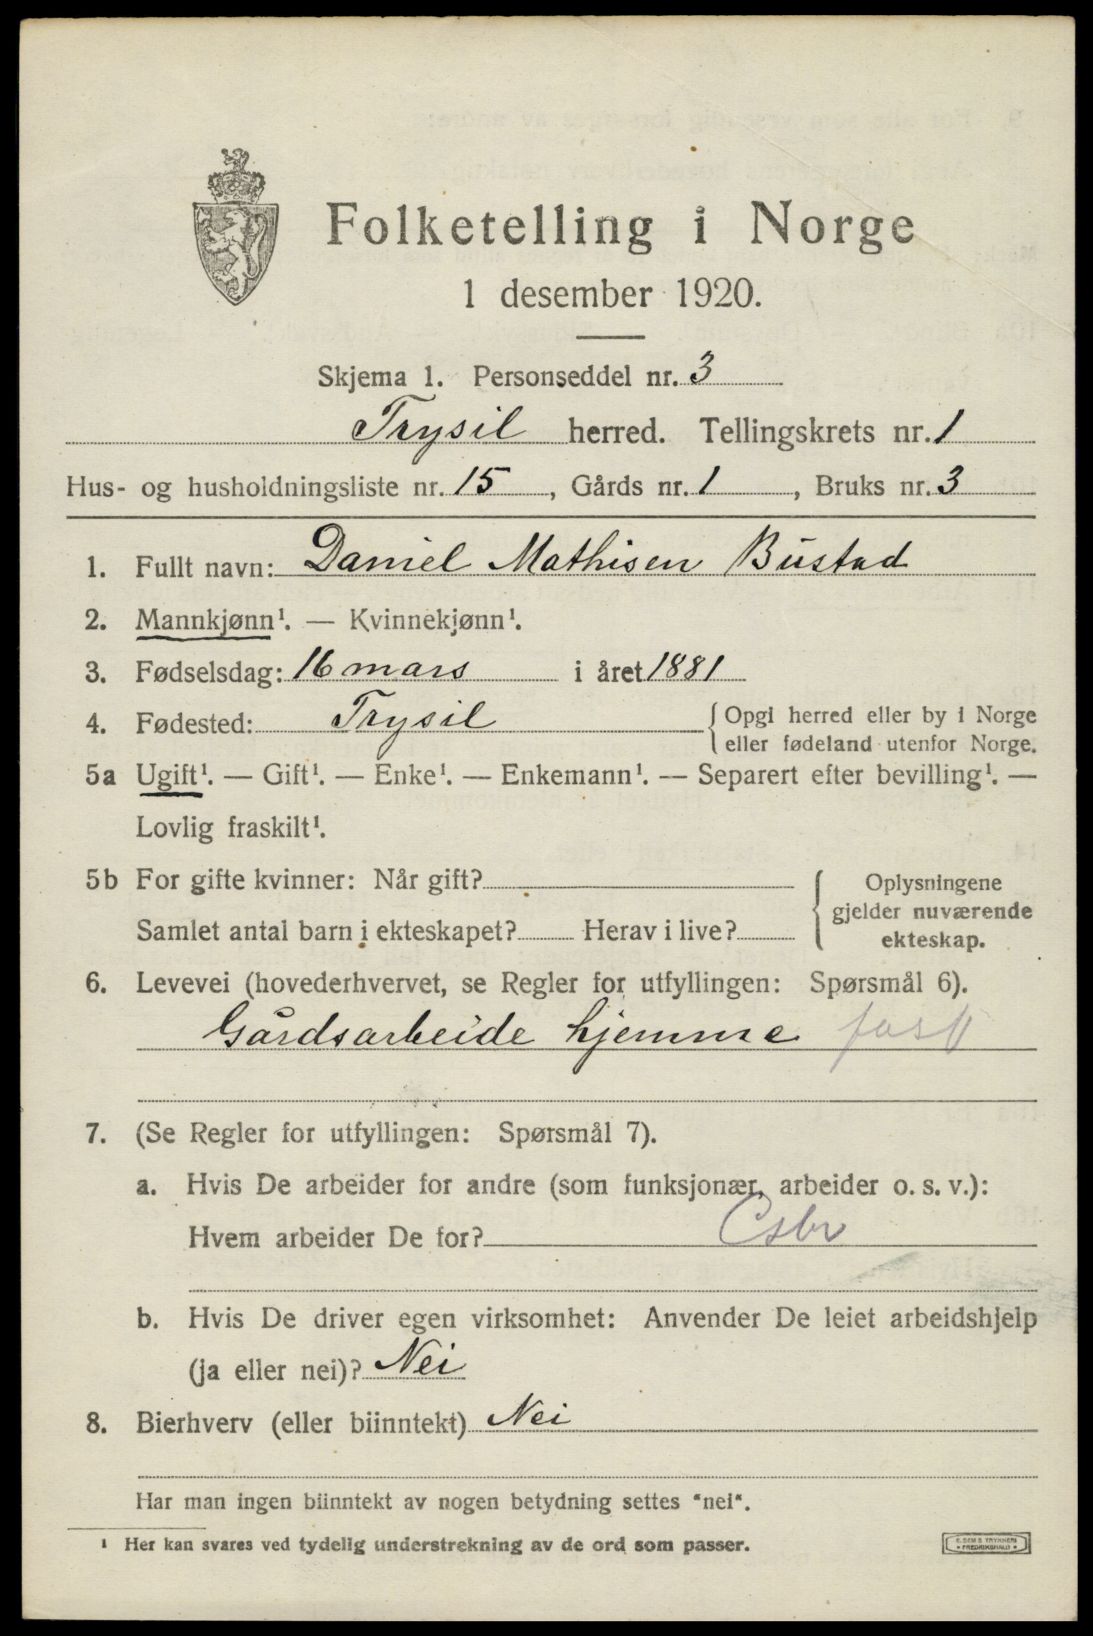 Folketelling i Norge
1 desember 1920.
Skjema 1. Personseddel nr. 3
Trysil herred. Tellingskrets nr. 1
Hus- og husholdningsliste nr. 15, Gårds nr. 1, Bruks nr. 3
1. Fullt navn: Daniel Mathisen Bustad
2. Mannkjønn¹. — Kvinnekjønn¹.
3. Fødselsdag: 16 mars i året 1881
4. Fødested: Trysil {Opgi herred eller by i Norge
eller fødeland utenfor Norge.
5a Ugift¹. — Gift¹. — Enke¹. — Enkemann¹. — Separert efter bevilling¹. —
Lovlig fraskilt¹.
5b For gifte kvinner: Når gift? { Oplysningene
gjelder nuværende
Samlet antal barn i ekteskapet? Herav i live?
ekteskap.
6. Levevei (hovederhvervet, se Regler for utfyllingen: Spørsmål 6).
Gårdsarbeide hjemme
7. (Se Regler for utfyllingen: Spørsmål 7).
a. Hvis De arbeider for andre (som funksjonær, arbeider o. s. v.):
Hvem arbeider De for?
b. Hvis De driver egen virksomhet: Anvender De leiet arbeidshjelp
(ja eller nei)? Nei
8. Bierhverv (eller biinntekt) Nei
Har man ingen biinntekt av nogen betydning settes "nei".
¹ Her kan svares ved tydelig understrekning av de ord som passer.
E. SEM S TRYKKERI
• FREDRIKSHALD •